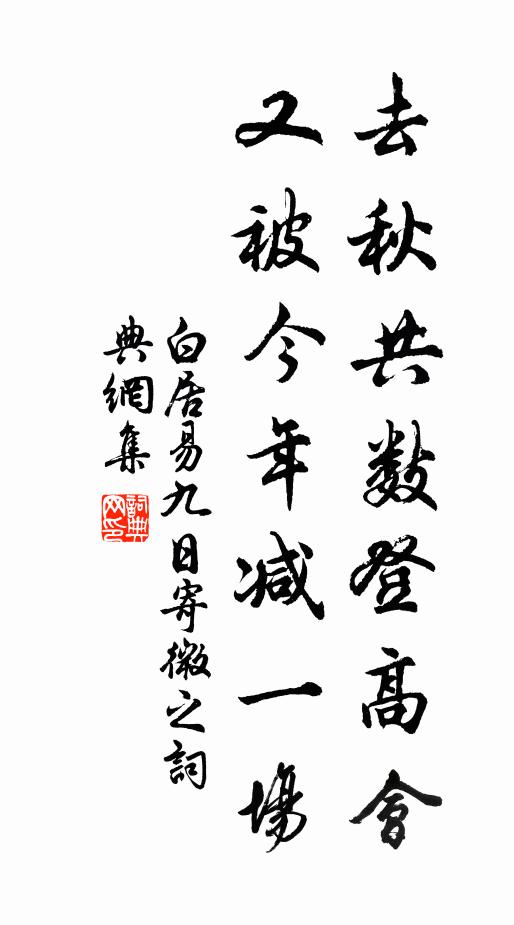 去秋共数登高會
又被今年减一場
白居易九日寄微之詞
典網集
詞典网印